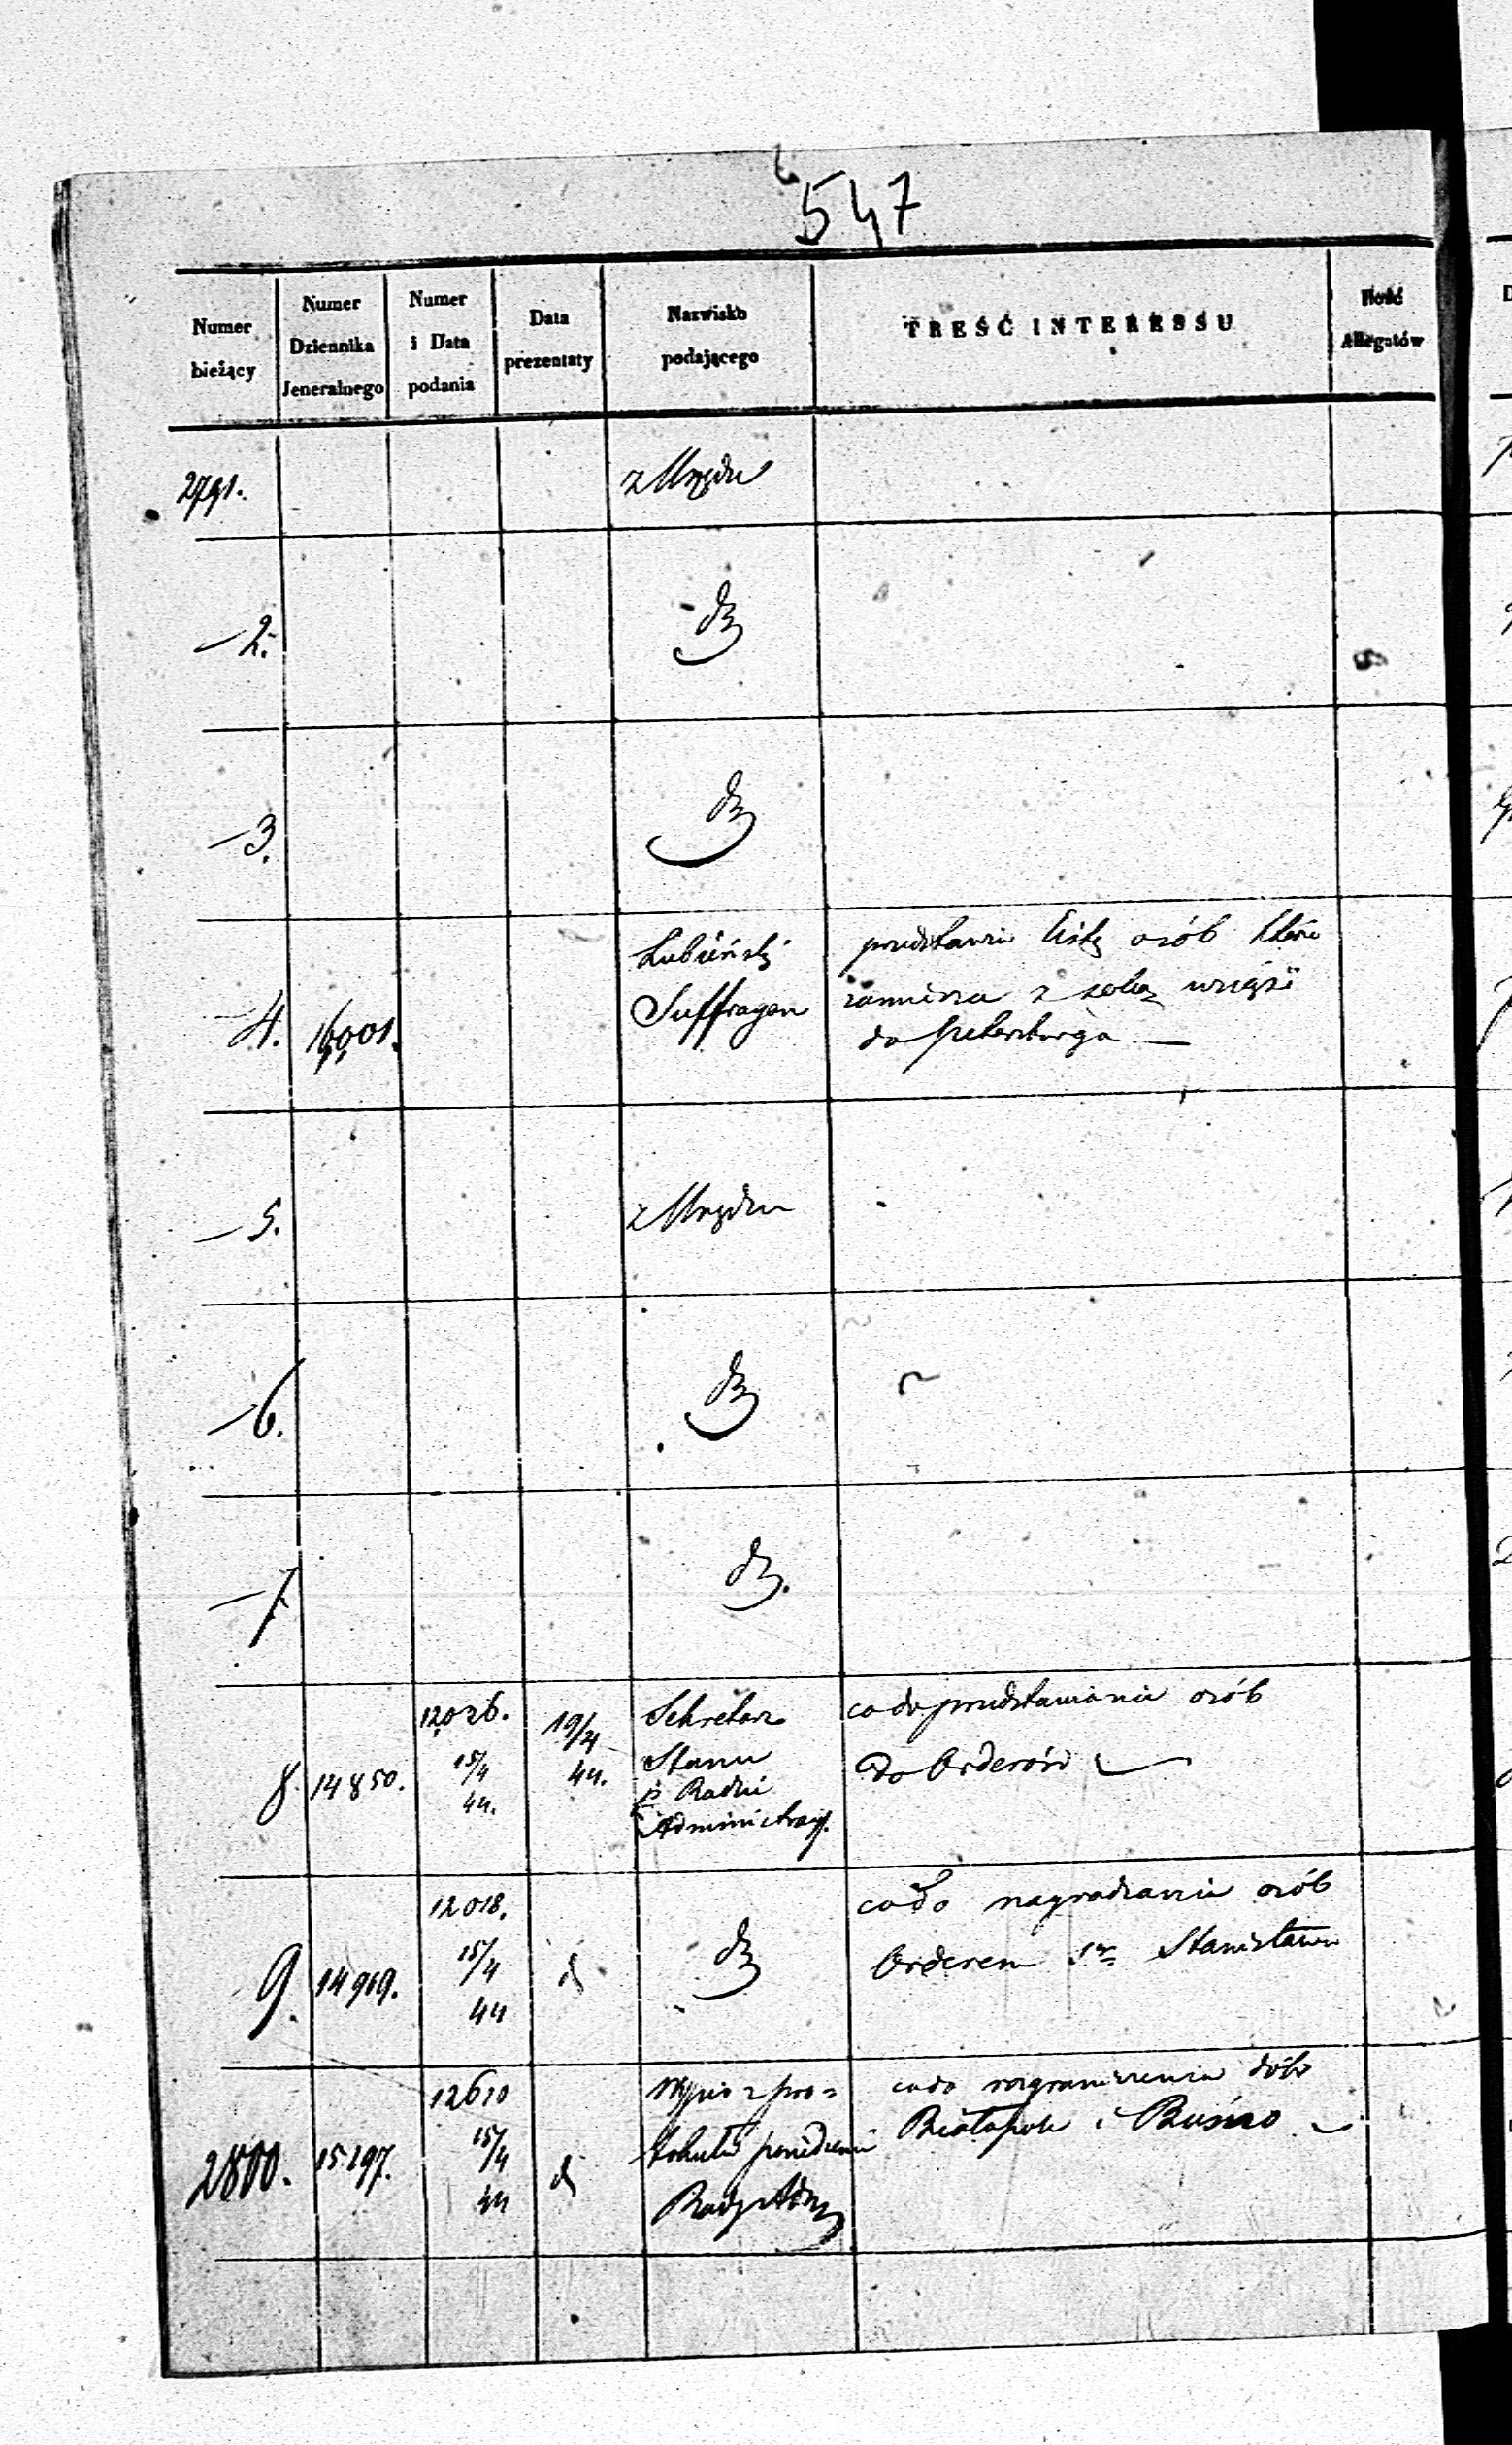 547
Numer
bieżący
Numer
Dziennika
Jeneralnego
Numer
i Data
podania
Data
prezentaty
Nazwisko
podającego
TREŚĆ INTERESSU
Ilość
Allegatów
2791.
z Urzędu
—2.
dt
—3.
dt
—4.
16001.
Lubieński
Suffragan
przedstawia listę osób które
zamierza z sobą wziąść
do Petersburga —
—5.
z Urzędu
—6.
dt
—7.
dt.
8.
14850.
12026.
15/4
44.
19/4
44.
Sekretarz
Stanu
p Radzie
Administracyj.
co do przedstawiania osób
do Orderów —
9.
14969.
12018.
15/4
44
d
dt
co do nagradzania osób
Orderem Sgo Stanisława
2800.
15197.
12610
15/4
44
d
Wypis z pro=
tokułu posiedzenia
Rady Adm
co do rozgraniczenia dóbr
Białopole i Buśno —